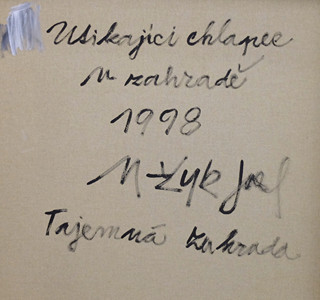 Utíkající chlapec
v zahradě
1998
Tajemná zahrada